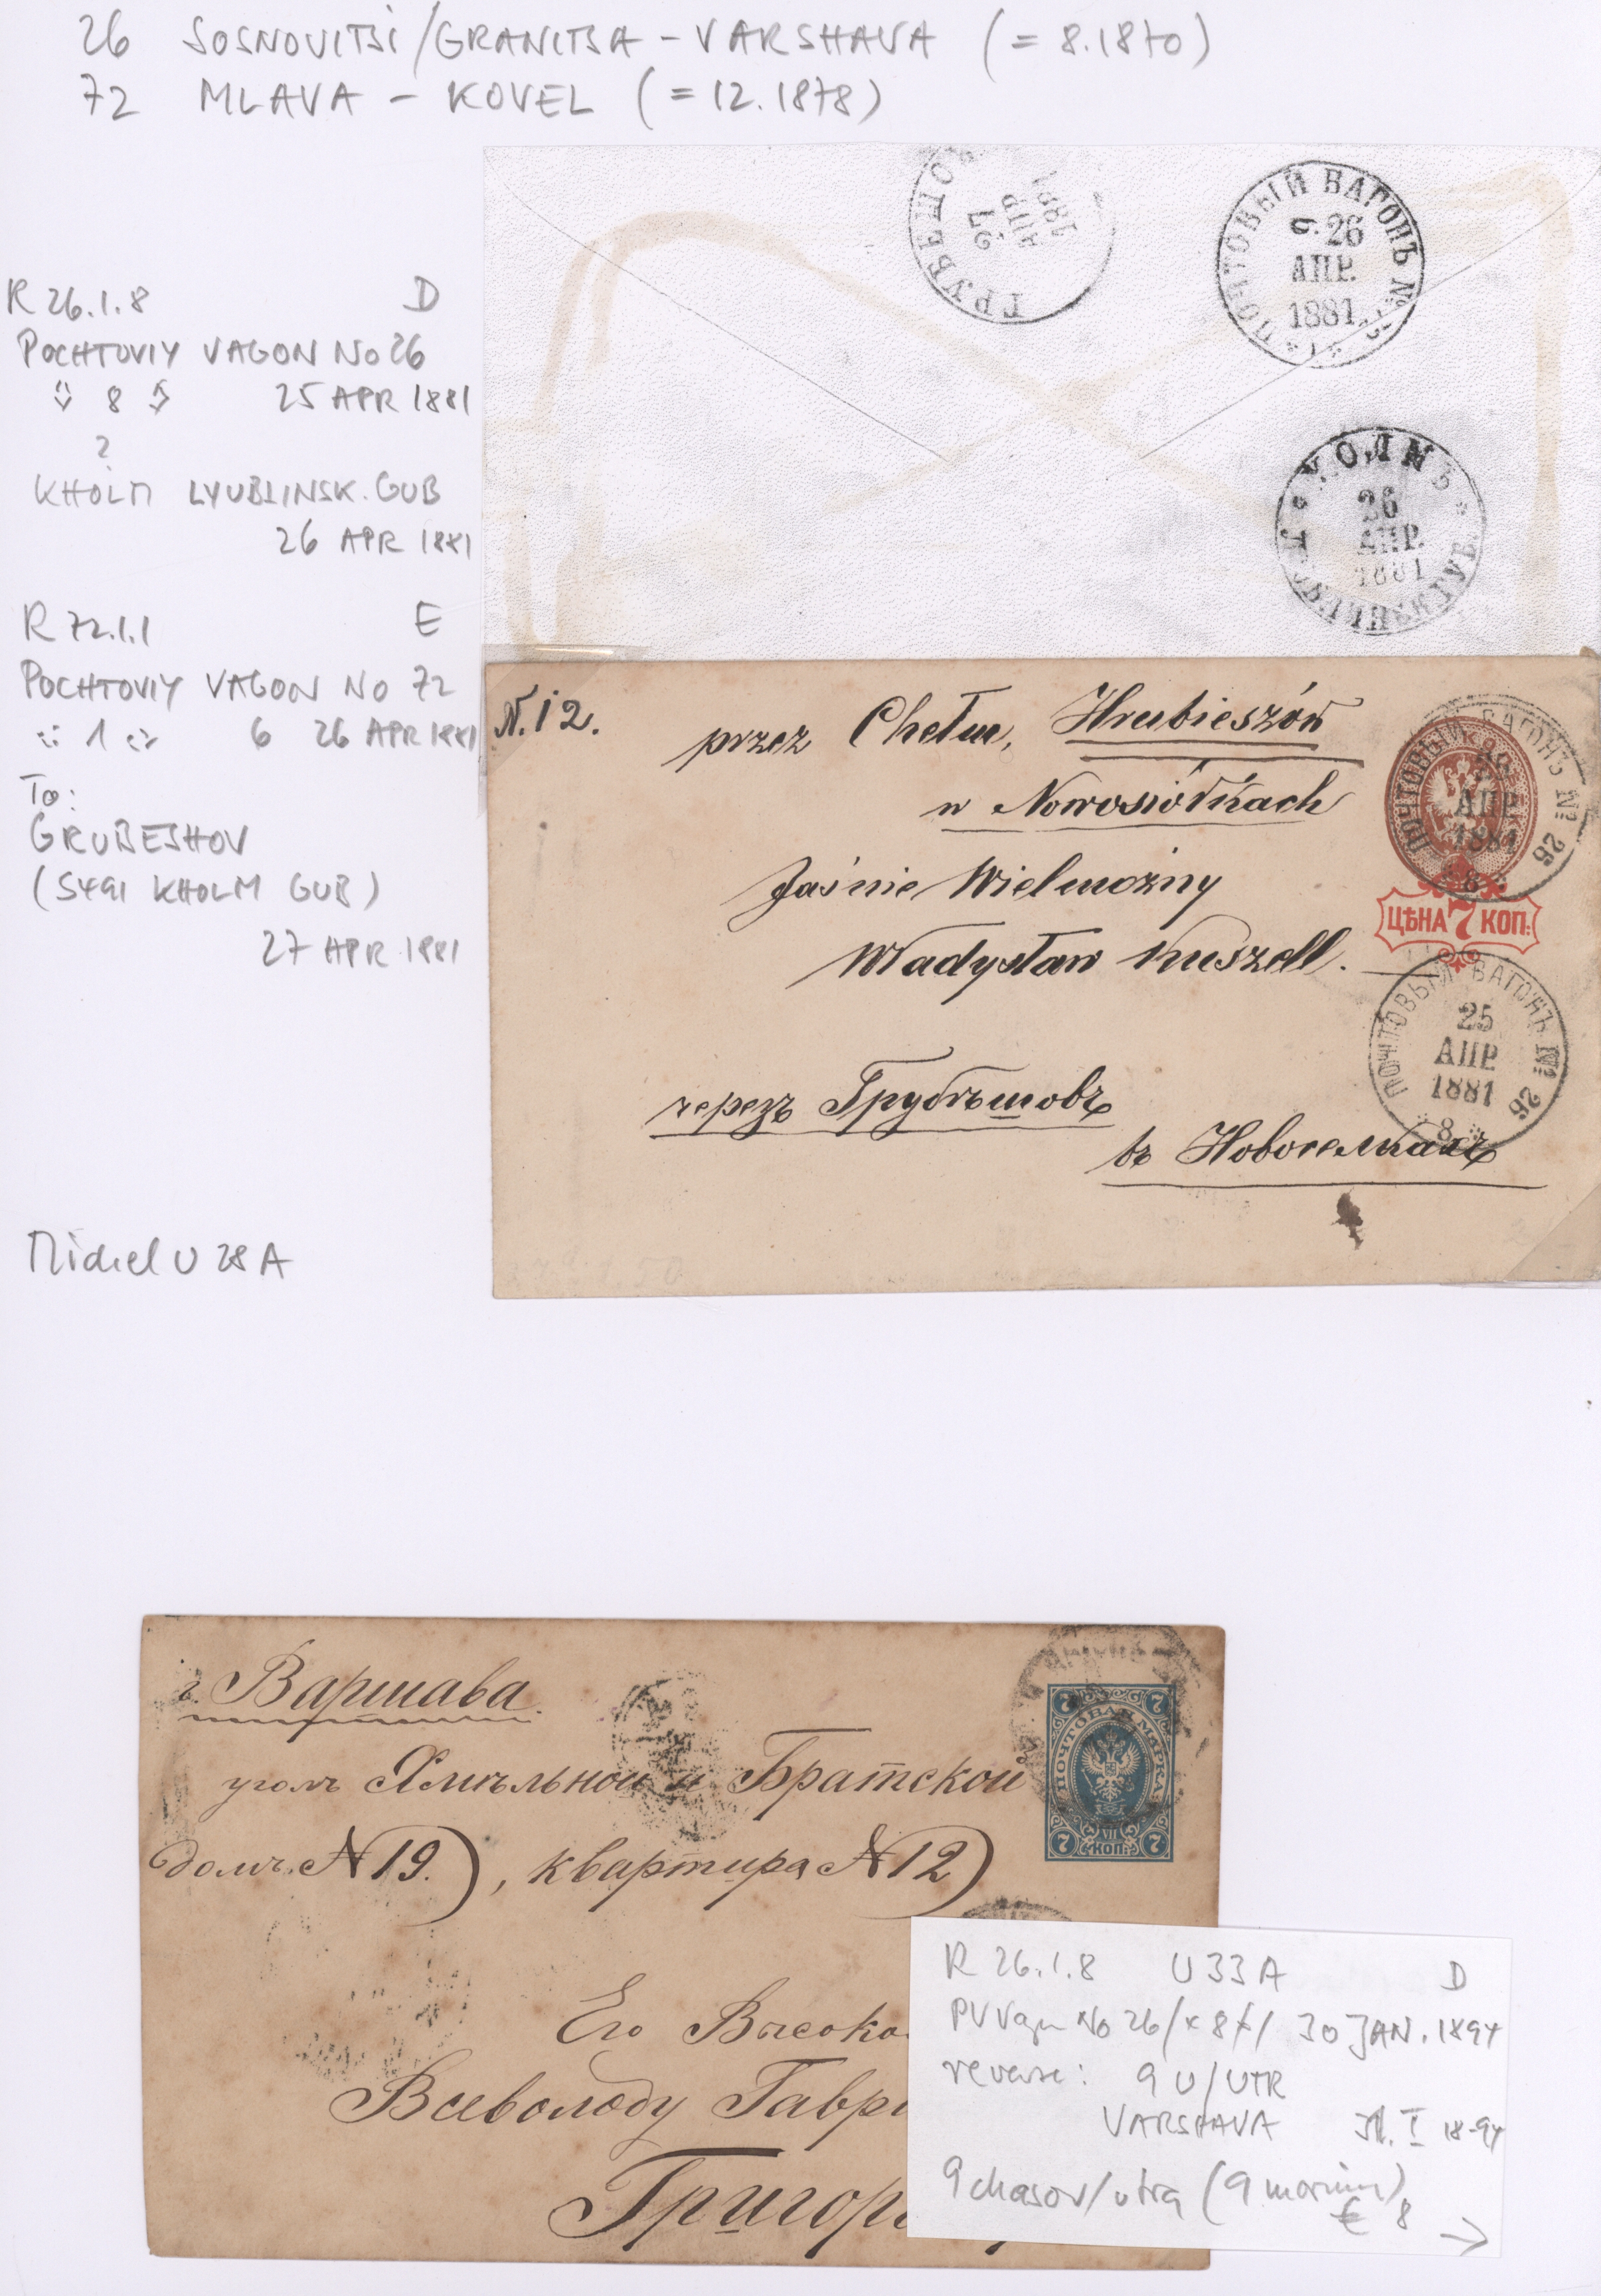 26 SOSNOVITSI/GRANITSA – VARSHAVA (= 8.1870)
72 MLAVA – KOVEL (= 12.1878)
R 26.1.8 D
POCHTOVIY VAGON NO 26
8 25 APR 1881
?
KHOLM LYUBLINSK. GUB
26 APR 1881
R 72.1.1 E
POCHTOVIY VAGON NO 72
1 6 26 APR 1881
To:
GRUBESHOV
(5491 KHOLM GUB)
27 APR 1881
Michel U 28 A
ГРУБЕШО
27
АПР
1881
ПОЧТОВЫЙ ВАГОНЪ №
6 26
АПР.
1881
ХОЛМЪ
26
АПР.
1881
ГУБ.
N. 12.
przez Chełm, Hrubieszów
w Nowosiółkach
Jaśnie Wielmożny
Władysław Kuszell.
черезъ Грубѣшовъ
въ Новоселкахъ
ПОЧТОВЫЙ ВАГОНЪ № 26
АПР
1881
8
ЦѢНА 7 КОП:
ПОЧТОВЫЙ ВАГОНЪ № 26
25
АПР.
1881
8
г. Варшава
уголъ Хмѣльной и Братской
домъ N 19.), квартира N 12)
Его Высоко
Всеволоду Гавр
Григор
7 7
ПОЧТОВАЯ МАРКА
VII
7 КОП. 7
R 26.1.8 U 33 A D
PV Vagn No 26/x 8 x/ 30 JAN. 1894
reverse: 9 U/UTR
VARSHAVA I 18-94
9 chasov/utra (9 morning)
€ 8